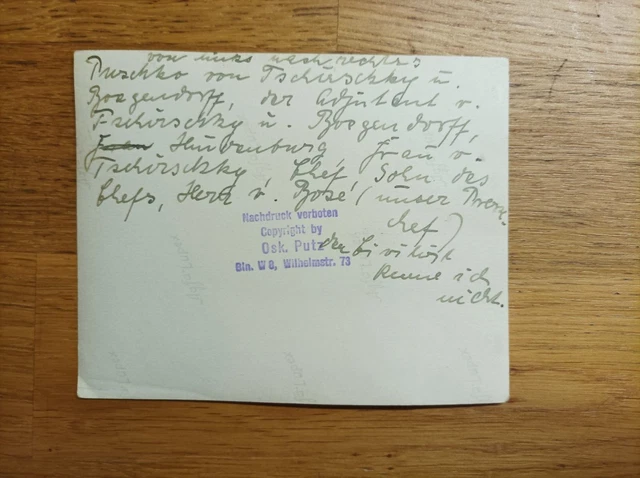 von links nach rechts
Puschko von Tschirschky u.
Boegendorff, der Adjutant v.
Tschirschky u. Boegendorff,
Hindenburg Frau v.
Tschirschky Chef, Sohn des
Chefs, Herr v. Bose (unser
chef)
der Civilist
kenne ich
nicht.
Nachdruck verboten
Copyright by
Osk. Putz
Bln. W 8, Wilhelmstr. 73